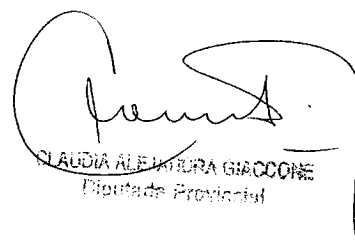 CLAUDIA ALEJANDRA GIACCONE
Diputada Provincial